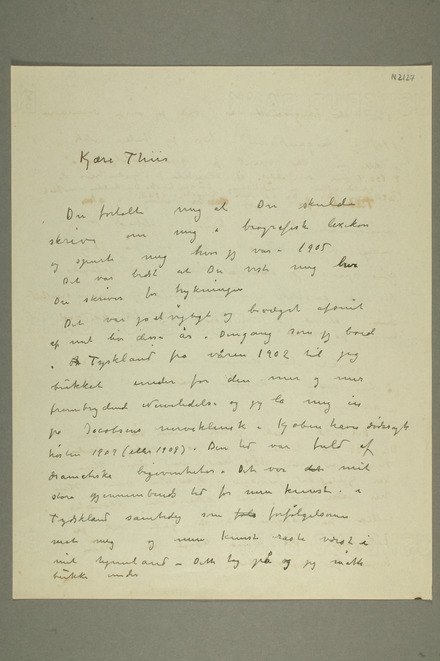 N2127
Kjære Thiis
Du fortalte mig at Du skulde
skrive om mig i biografisk lexikon
og spurte mig hvor jeg var i 1905
Det var bedst at Du viste mig hva
Du skriver før trykningen
Det var jo et vigtigt og bevæget afsnit
af mit liv disse år. Dengang som jeg boed
i Tyskland fra våren 1902 til jeg
bukket under for den mer og mer
frembrydende og jeg la mig in
på Jacobsens nerveklinik i Kjøbenhavn dødssygt
høsten 1909 (eller 1908). Den tid var fuld af
dramatiske begivenheter. Det var det mit
store gjennembruds tid for min kunst i
Tydskland samtidig som forfølgelserne
mod mig og min kunst raste værst i
mit hjemland – Dette tog på og jeg måtte
bukke under